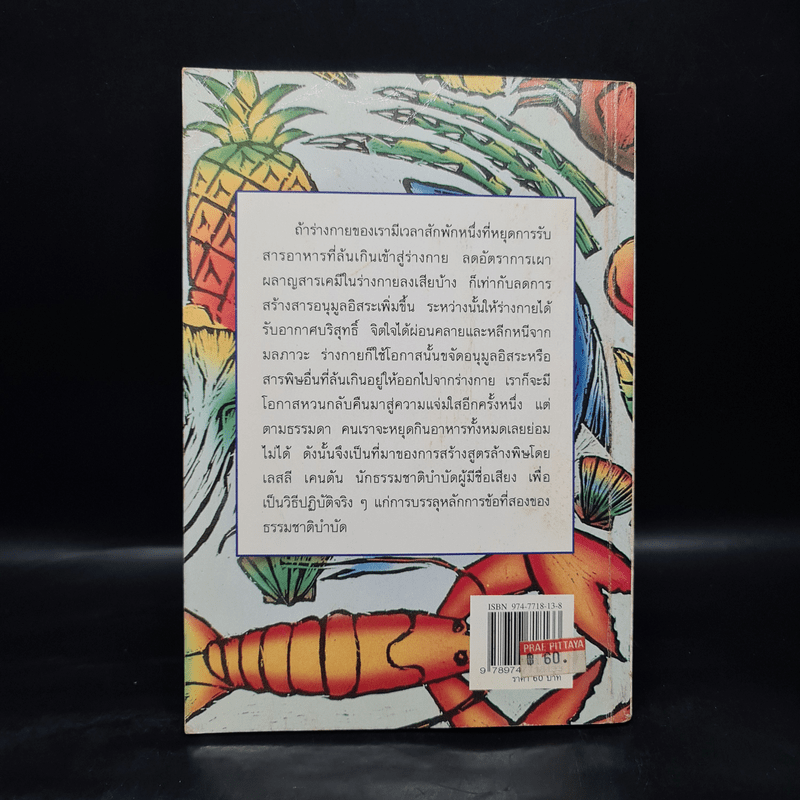 ถ้าร่างกายของเรามีเวลาสักพักหนึ่งที่หยุดการรับ
สารอาหารที่ล้นเกินเข้าสู่ร่างกาย ลดอัตราการเผา
ผลาญสารเคมีในร่างกายลงเสียบ้าง ก็เท่ากับลดการ
สร้างสารอนุมูลอิสระเพิ่มขึ้น ระหว่างนั้นให้ร่างกายได้
รับอากาศบริสุทธิ์ จิตใจได้ผ่อนคลายและหลีกหนีจาก
มลภาวะ ร่างกายก็ใช้โอกาสนั้นขจัดอนุมูลอิสระหรือ
สารพิษอื่นที่ล้นเกินอยู่ให้ออกไปจากร่างกาย เราก็จะมี
โอกาสหวนกลับคืนมาสู่ความแจ่มใสอีกครั้งหนึ่ง แต่
ตามธรรมดา คนเราจะหยุดกินอาหารทั้งหมดเลยย่อม
ไม่ได้ ดังนั้นจึงเป็นที่มาของการสร้างสูตรล้างพิษโดย
เลสลี เคนตัน นักธรรมชาติบำบัดผู้มีชื่อเสียง เพื่อ
เป็นวิธีปฏิบัติจริง ๆ แก่การบรรลุหลักการข้อที่สองของ
ธรรมชาติบำบัด
ISBN 974-7718-13-8
PRAE PITTAYA
฿ 60.
9 78974
ราคา 60 บาท